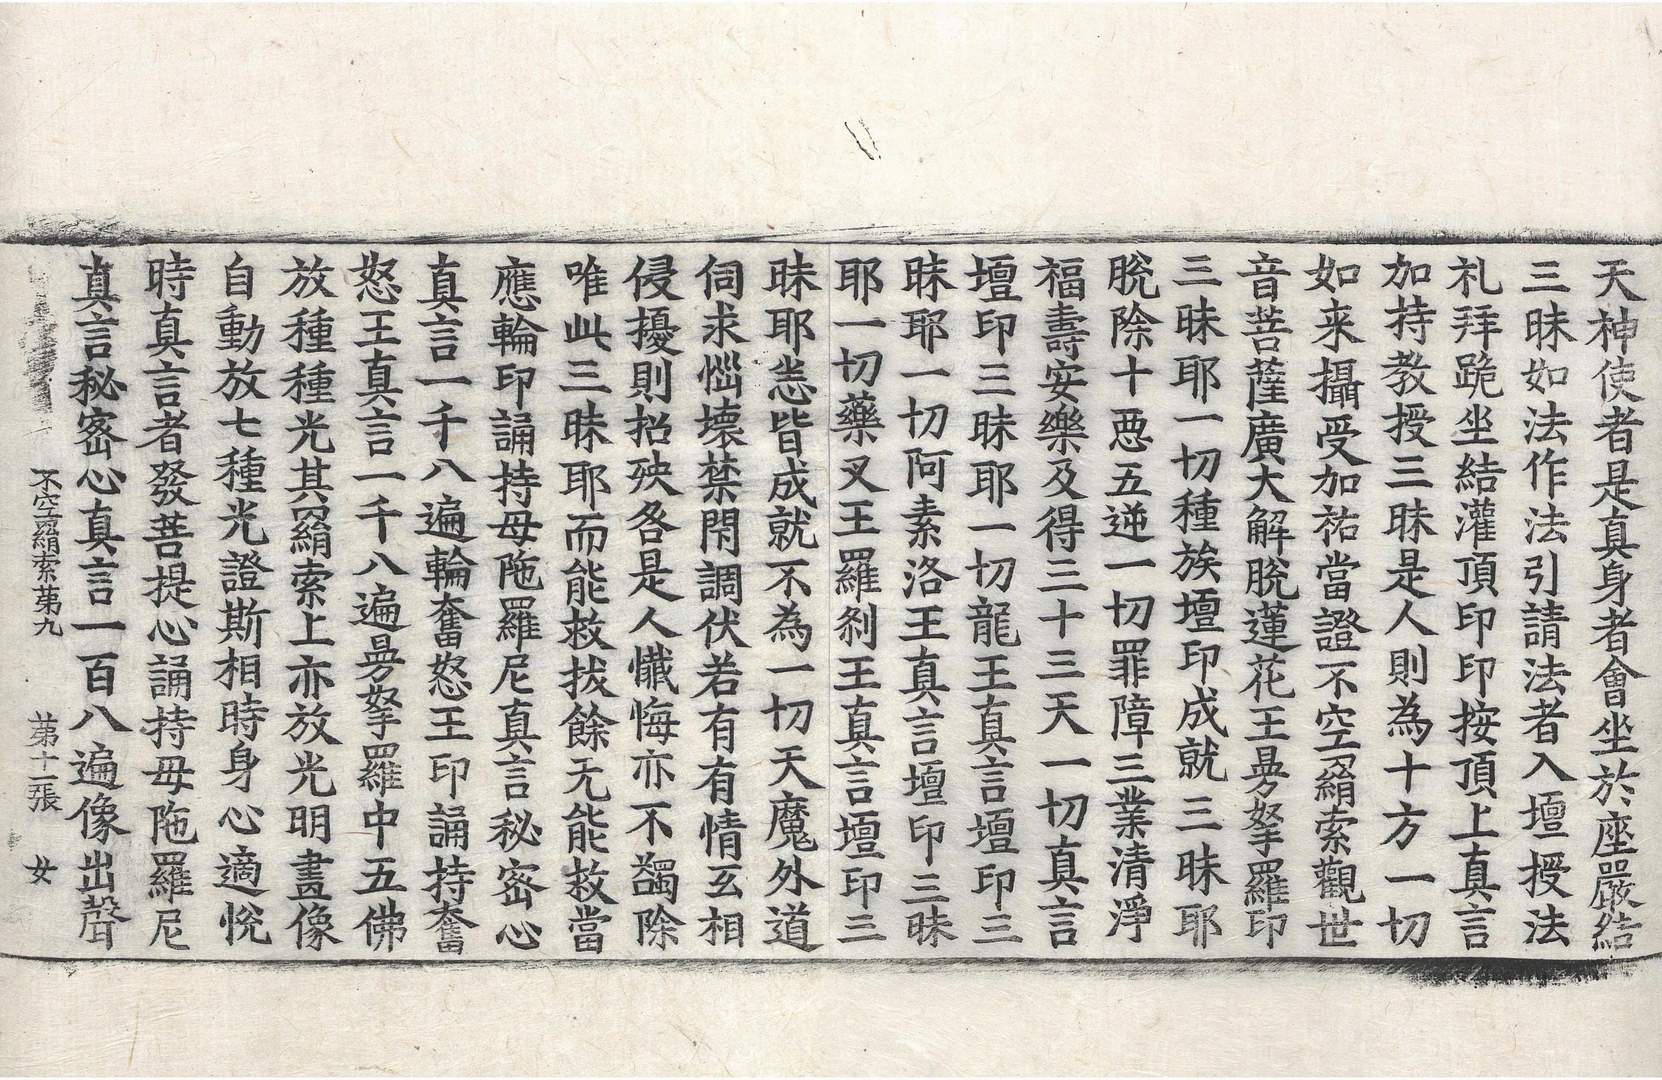 天神使者是真身者會坐於座嚴結
三昧如法作法引請法者入壇授法
礼拜跪坐結灌頂印印按頂上真言
加持教授三昧是人則為十方一切
如来攝受加祐當證不空羂索觀世
音菩薩廣大解脫蓮花王㫊拏羅印
三昧耶一切種族壇印成就三昧耶
脫除十惡五逆一切罪障三業清淨
福壽安樂及得三十三天一切真言
壇印三昧耶一切龍王真言壇印三
昧耶一切阿素洛王真言壇印三昧
耶一切藥叉王羅刹王真言壇印三
昧耶悉皆成就不為一切天魔外道
伺求惱壞禁閇調伏若有有情互相
侵擾則招殃咎是人懺悔亦不蠲除
唯此三昧耶而能救拔餘无能救當
應輪印誦持母陁羅尼真言秘密心
真言一千八遍輪奮怒王印誦持奮
怒王真言一千八遍㫊拏羅中五佛
放種種光其羂索上亦放光明畫像
自動放七種光證斯相時身心適悅
時真言者發菩提心誦持母陁羅尼
真言秘密心真言一百八遍像出聲
不空羂索苐九 苐十一張 女